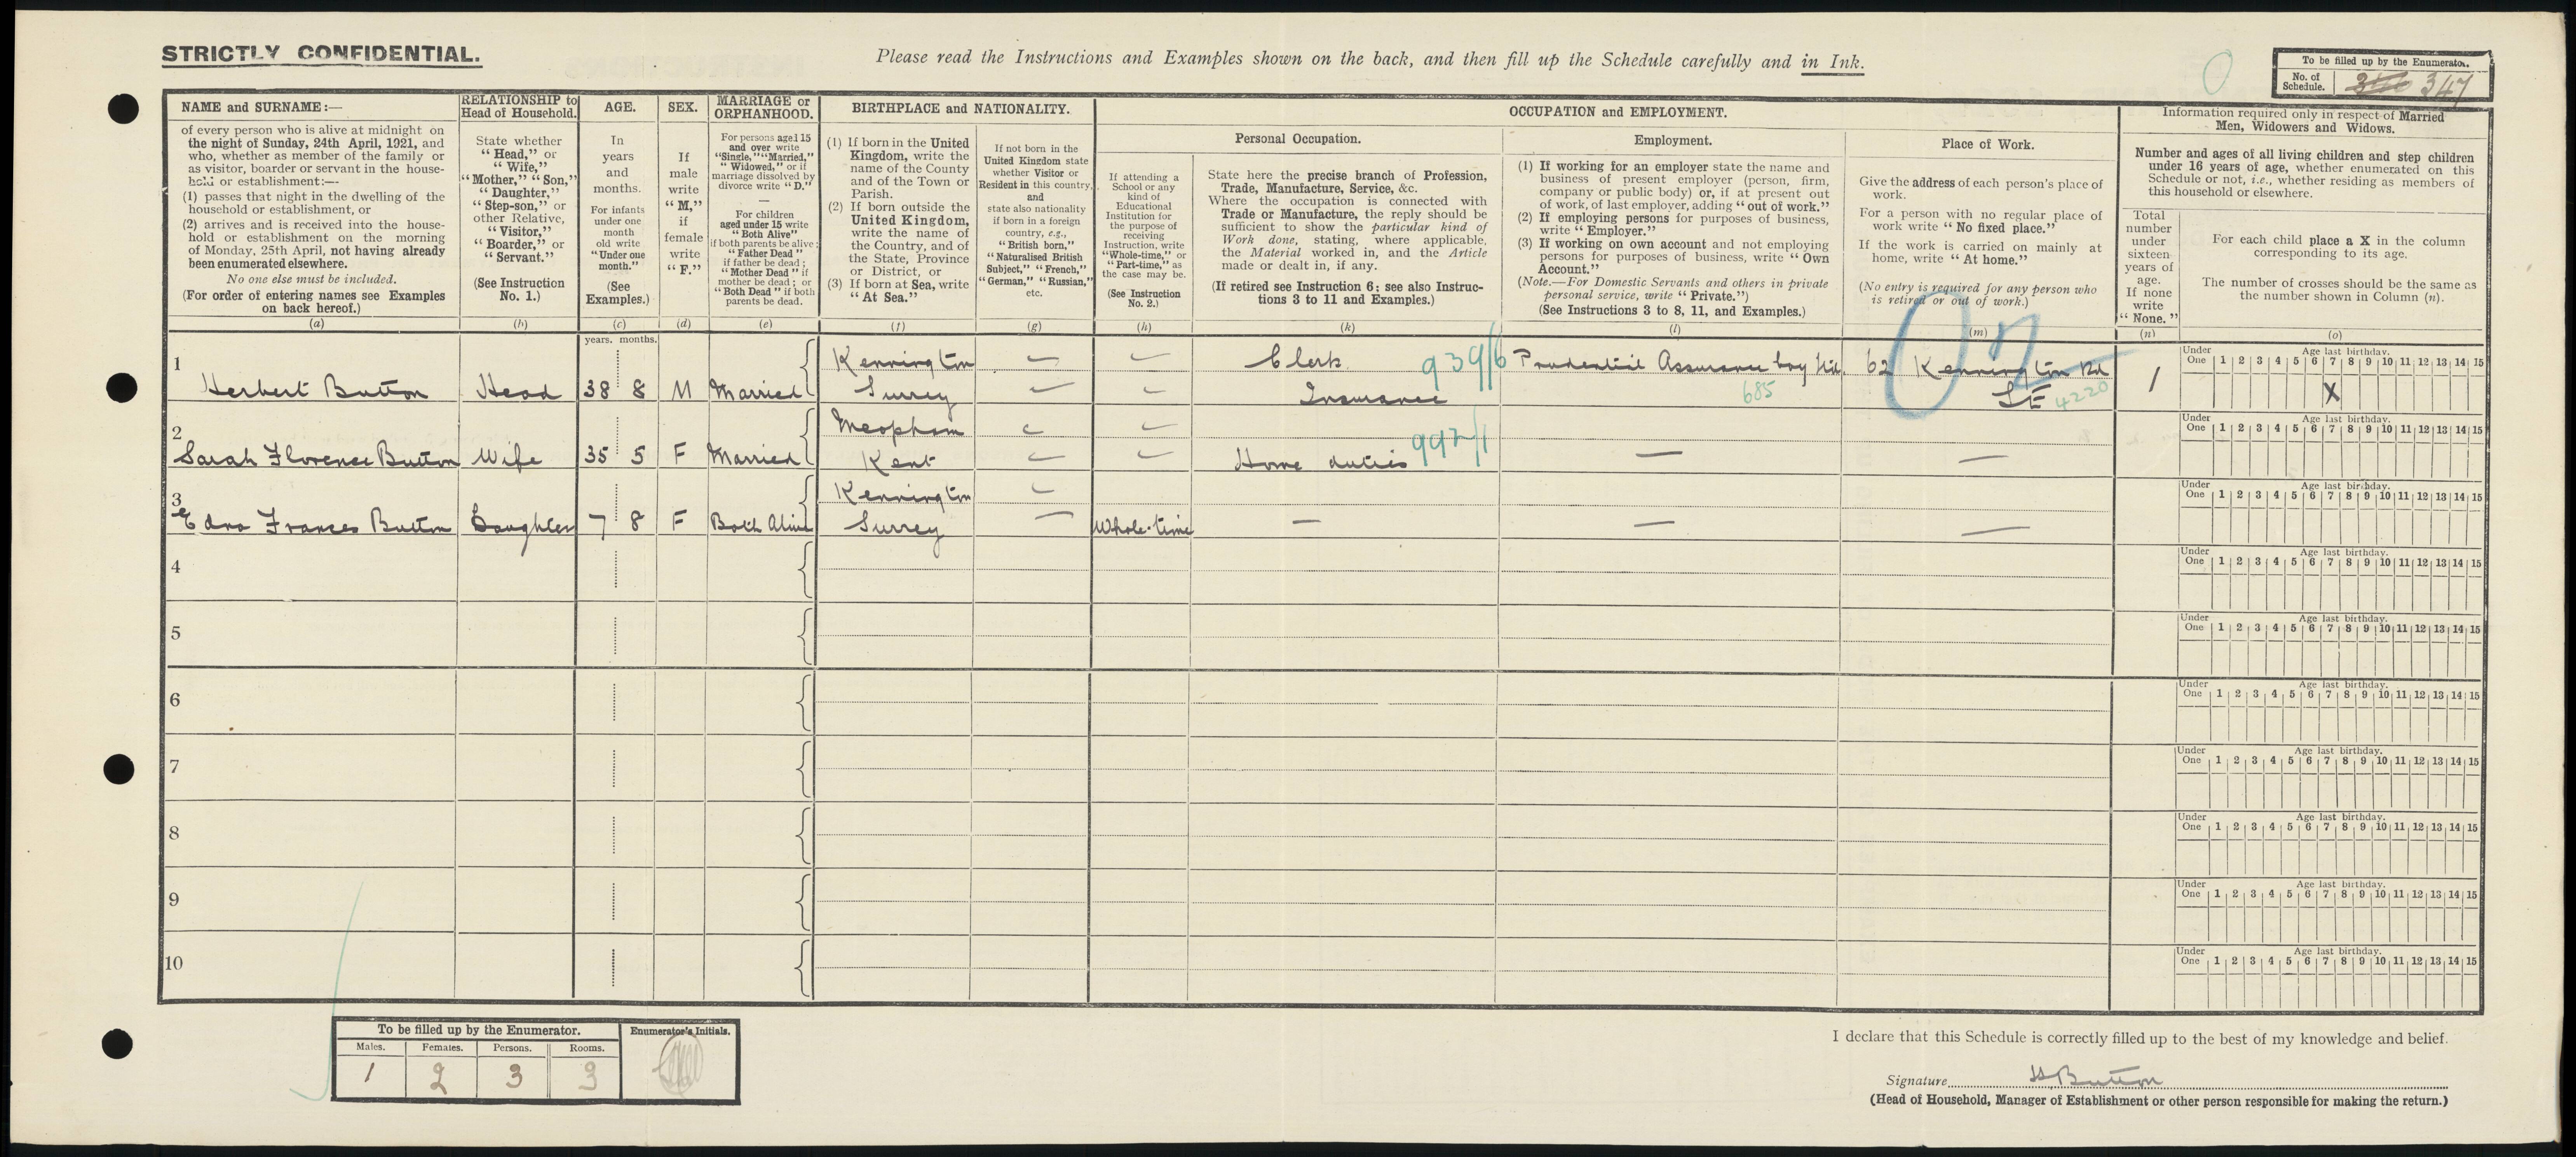 STRICTLY CONFIDENTIAL.
Please read the Instructions and Examples shown on the back, and then fill up the Schedule carefully and in Ink.
To be filled up by the Enumerator.
No. of Schedule. 347
NAME and SURNAME:—
of every person who is alive at midnight on
the night of Sunday, 24th April, 1921, and
who, whether as member of the family or
as visitor, boarder or servant in the house-
hold or establishment:—
(1) passes that night in the dwelling of the
household or establishment, or
(2) arrives and is received into the house-
hold or establishment on the morning
of Monday, 25th April, not having already
been enumerated elsewhere.
No one else must be included.
(For order of entering names see Examples
on back hereof.)
(a)
RELATIONSHIP to
Head of Household.
State whether
"Head," or
"Wife,"
"Mother," "Son,"
"Daughter,"
"Step-son," or
other Relative,
"Visitor,"
"Boarder," or
"Servant."
(See Instruction
No. 1.)
(b)
AGE.
In
years
and
months.
For infants
under one
month
old write
"Under one
month."
(See
Examples.)
(c)
SEX.
If
male
write
"M,"
if
female
write
"F."
(d)
MARRIAGE or
ORPHANHOOD.
For persons aged 15
and over write
"Single," "Married,"
"Widowed," or if
marriage dissolved by
divorce write "D."
—
For children
aged under 15 write
"Both Alive"
if both parents be alive;
"Father Dead"
if father be dead;
"Mother Dead" if
mother be dead; or
"Both Dead" if both
parents be dead.
(e)
BIRTHPLACE and NATIONALITY.
(1) If born in the United
Kingdom, write the
name of the County
and of the Town or
Parish.
(2) If born outside the
United Kingdom,
write the name of
the Country, and of
the State, Province
or District, or
(3) If born at Sea, write
"At Sea."
(f)
If not born in the
United Kingdom state
whether Visitor or
Resident in this country,
and
state also nationality
if born in a foreign
country, e.g.,
"British born,"
"Naturalised British
Subject," "French,"
"German," "Russian,"
etc.
(g)
OCCUPATION and EMPLOYMENT.
If attending a
School or any
kind of
Educational
Institution for
the purpose of
receiving
Instruction, write
"Whole-time," or
"Part-time," as
the case may be.
(See Instruction
No. 2.)
(h)
Personal Occupation.
State here the precise branch of Profession,
Trade, Manufacture, Service, &c.
Where the occupation is connected with
Trade or Manufacture, the reply should be
sufficient to show the particular kind of
Work done, stating, where applicable,
the Material worked in, and the Article
made or dealt in, if any.
(If retired see Instruction 6: see also Instruc-
tions 3 to 11 and Examples.)
(k)
Employment.
(1) If working for an employer state the name and
business of present employer (person, firm,
company or public body) or, if at present out
of work, of last employer, adding "out of work."
(2) If employing persons for purposes of business,
write "Employer."
(3) If working on own account and not employing
persons for purposes of business, write "Own
Account."
(Note.—For Domestic Servants and others in private
personal service, write "Private.")
(See Instructions 3 to 8, 11, and Examples.)
(l)
Place of Work.
Give the address of each person's place of
work.
For a person with no regular place of
work write "No fixed place."
If the work is carried on mainly at
home, write "At home."
(No entry is required for any person who
is retired or out of work.)
(m)
Information required only in respect of Married
Men, Widowers and Widows.
Number and ages of all living children and step children
under 16 years of age, whether enumerated on this
Schedule or not, i.e., whether residing as members of
this household or elsewhere.
Total
number
under
sixteen
years of
age.
If none
write
"None."
(n)
For each child place a X in the column
corresponding to its age.
The number of crosses should be the same as
the number shown in Column (n).
(o)
years. months.
1 Herbert Button Head 38 8 M Married Kennington Surrey — — Clerk Insurance 939/6 Prudential Assurance Coy Ltd. 685 62 Kennington Rd SE 4220 1
Under One Age last birthday. 1 2 3 4 5 6 7 8 9 10 11 12 13 14 15
X
2 Sarah Florence Button Wife 35 5 F Married Meopham Kent — — Home duties 992/1 — —
Under One Age last birthday. 1 2 3 4 5 6 7 8 9 10 11 12 13 14 15
3 Edna Frances Button Daughter 7 8 F Both Alive Kennington Surrey — Whole-time — — —
Under One Age last birthday. 1 2 3 4 5 6 7 8 9 10 11 12 13 14 15
4
Under One Age last birthday. 1 2 3 4 5 6 7 8 9 10 11 12 13 14 15
5
Under One Age last birthday. 1 2 3 4 5 6 7 8 9 10 11 12 13 14 15
6
Under One Age last birthday. 1 2 3 4 5 6 7 8 9 10 11 12 13 14 15
7
Under One Age last birthday. 1 2 3 4 5 6 7 8 9 10 11 12 13 14 15
8
Under One Age last birthday. 1 2 3 4 5 6 7 8 9 10 11 12 13 14 15
9
Under One Age last birthday. 1 2 3 4 5 6 7 8 9 10 11 12 13 14 15
10
Under One Age last birthday. 1 2 3 4 5 6 7 8 9 10 11 12 13 14 15
To be filled up by the Enumerator.
Males. Females. Persons. Rooms.
1 2 3 3
Enumerator's Initials.
I declare that this Schedule is correctly filled up to the best of my knowledge and belief.
Signature H Button
(Head of Household, Manager of Establishment or other person responsible for making the return.)